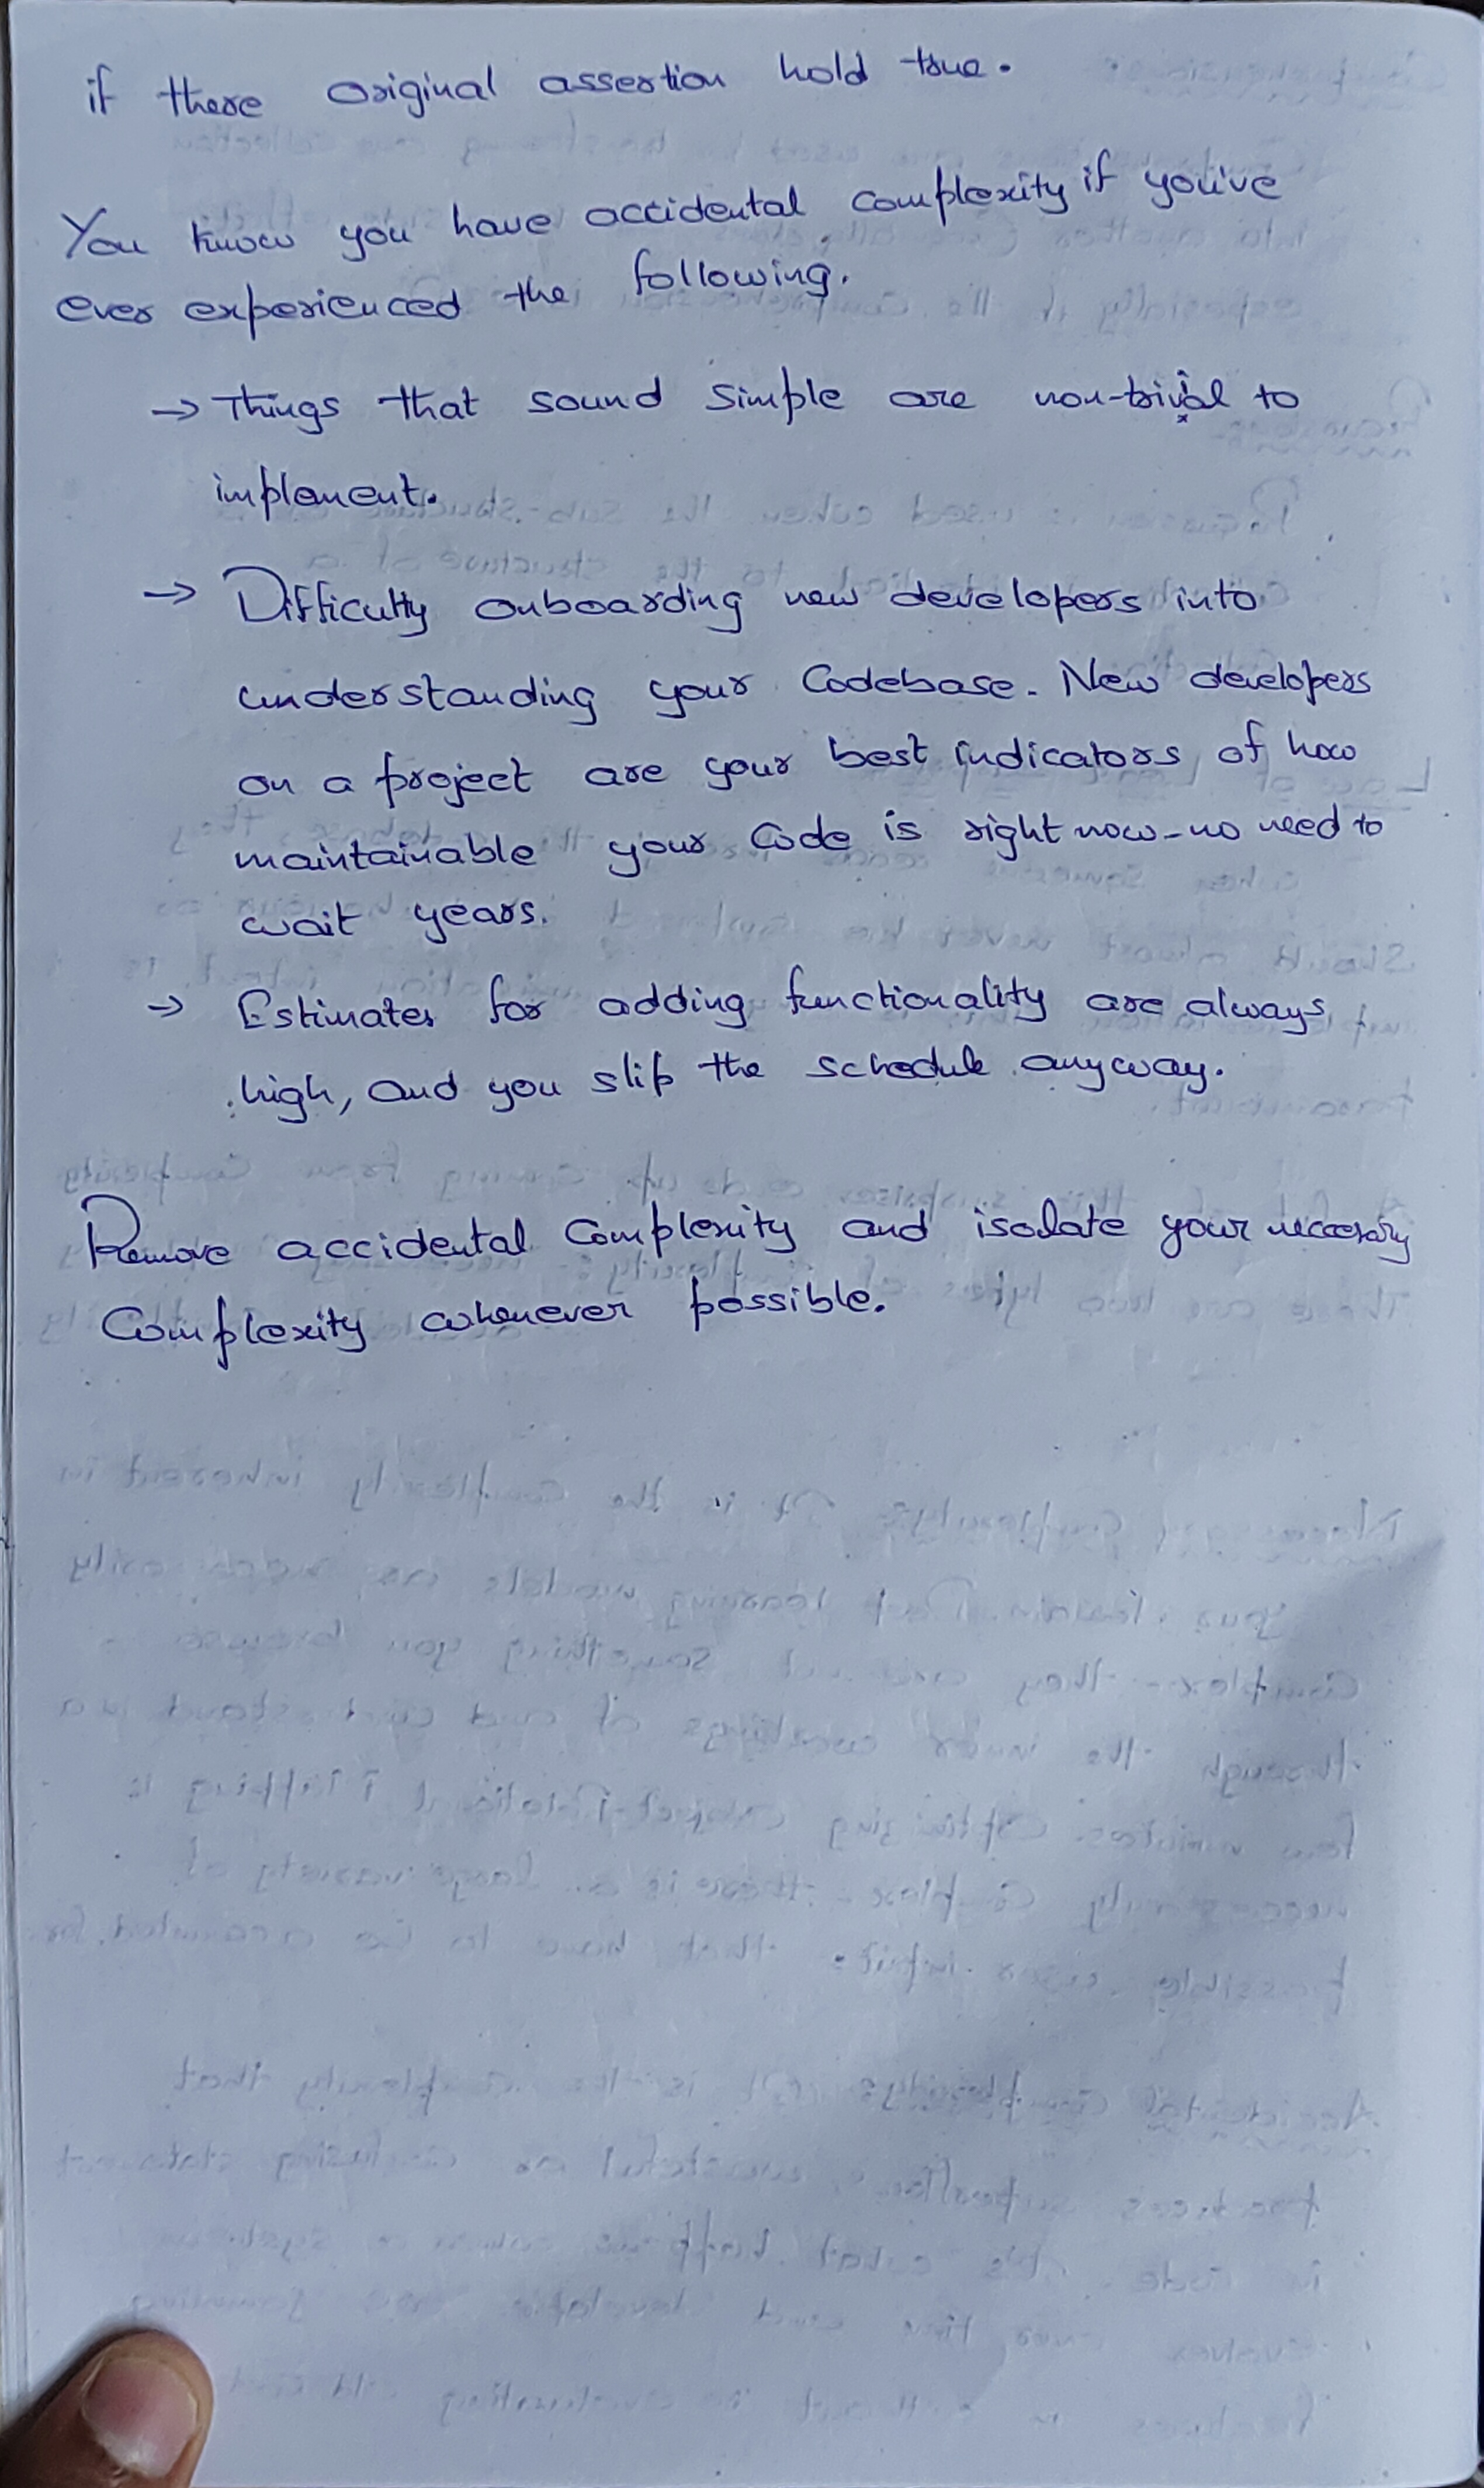 if there original assertion hold true.
You know you have accidental complexity if you've
ever experienced the following.
→ Things that sound simple are non-trivial to
implement.
→ Difficulty onboarding new developers into
understanding your Codebase. New developers
on a project are your best indicators of how
maintainable your Code is right now-no need to
wait years.
→ Estimates for adding functionality are always
high, and you slip the schedule anyway.
Remove accidental Complexity and isolate your necessary
Complexity whenever possible.